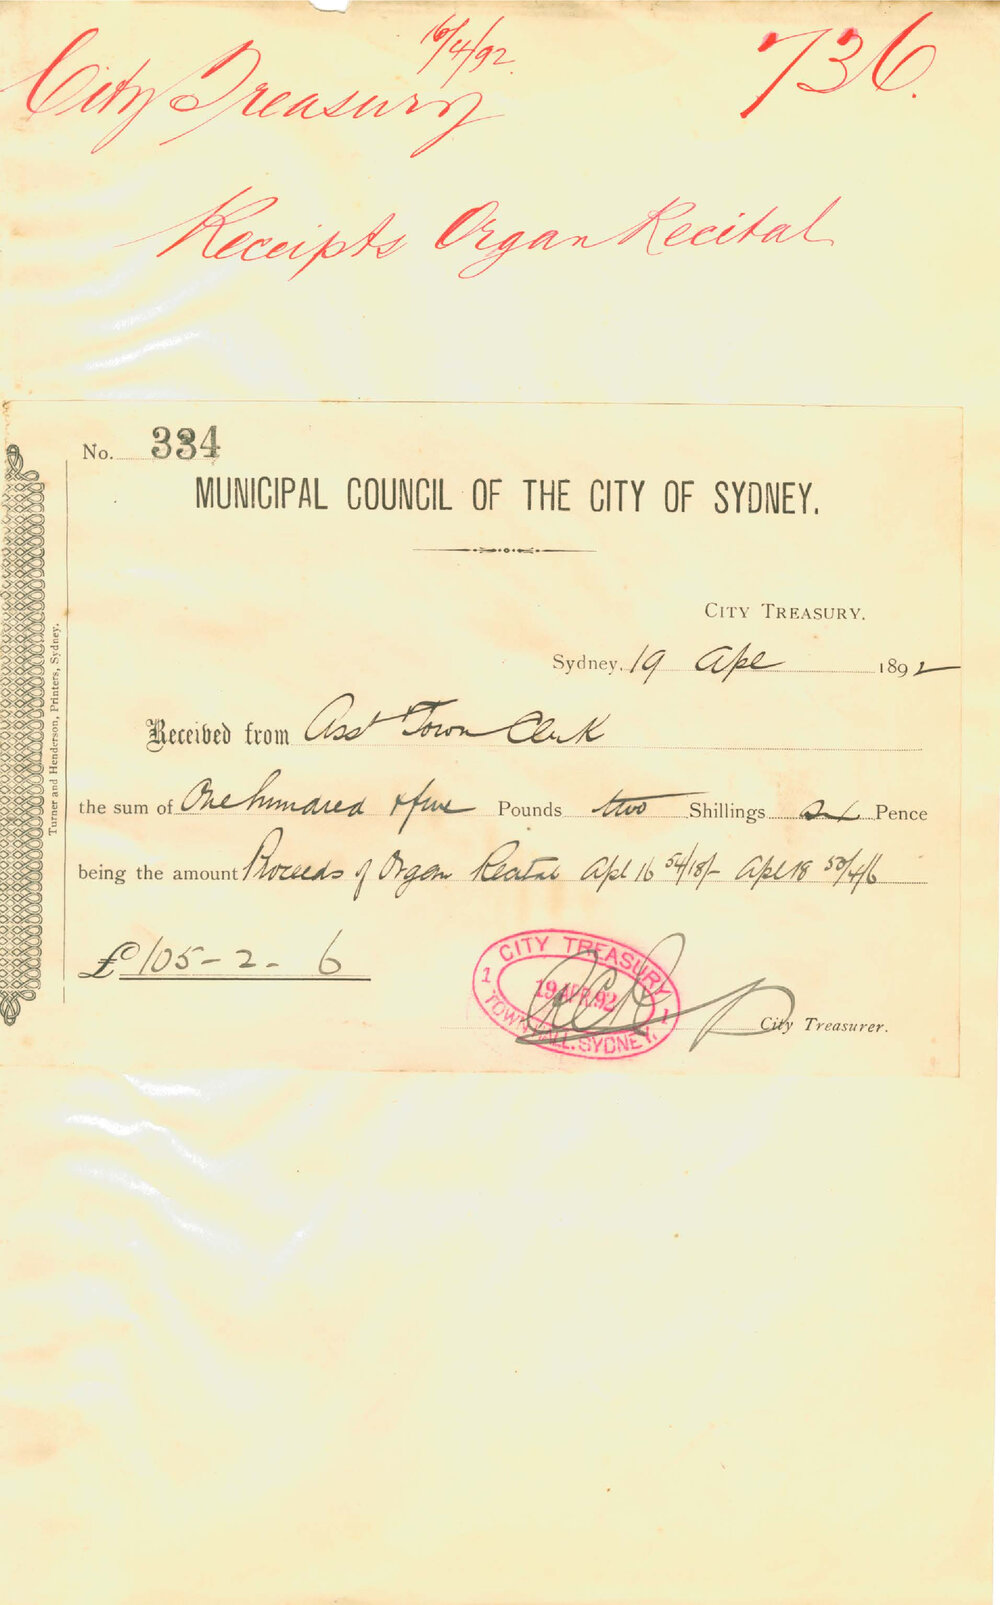 16/4/92
City Treasury
736.
Receipts Organ Recital
No. 334
MUNICIPAL COUNCIL OF THE CITY OF SYDNEY.
CITY TREASURY.
Sydney. 19 Apl 1892
Received from Asst Town Clerk
the sum of One hundred & five Pounds two Shillings six Pence
being the amount Proceeds of Organ Recital Apl 16 54/18/- Apl 18 50/4/6
£ 105-2-6
CITY TREASURY
1 19 APR. 92 1
TOWN HALL. SYDNEY.
City Treasurer.
Turner and Henderson, Printers, Sydney.